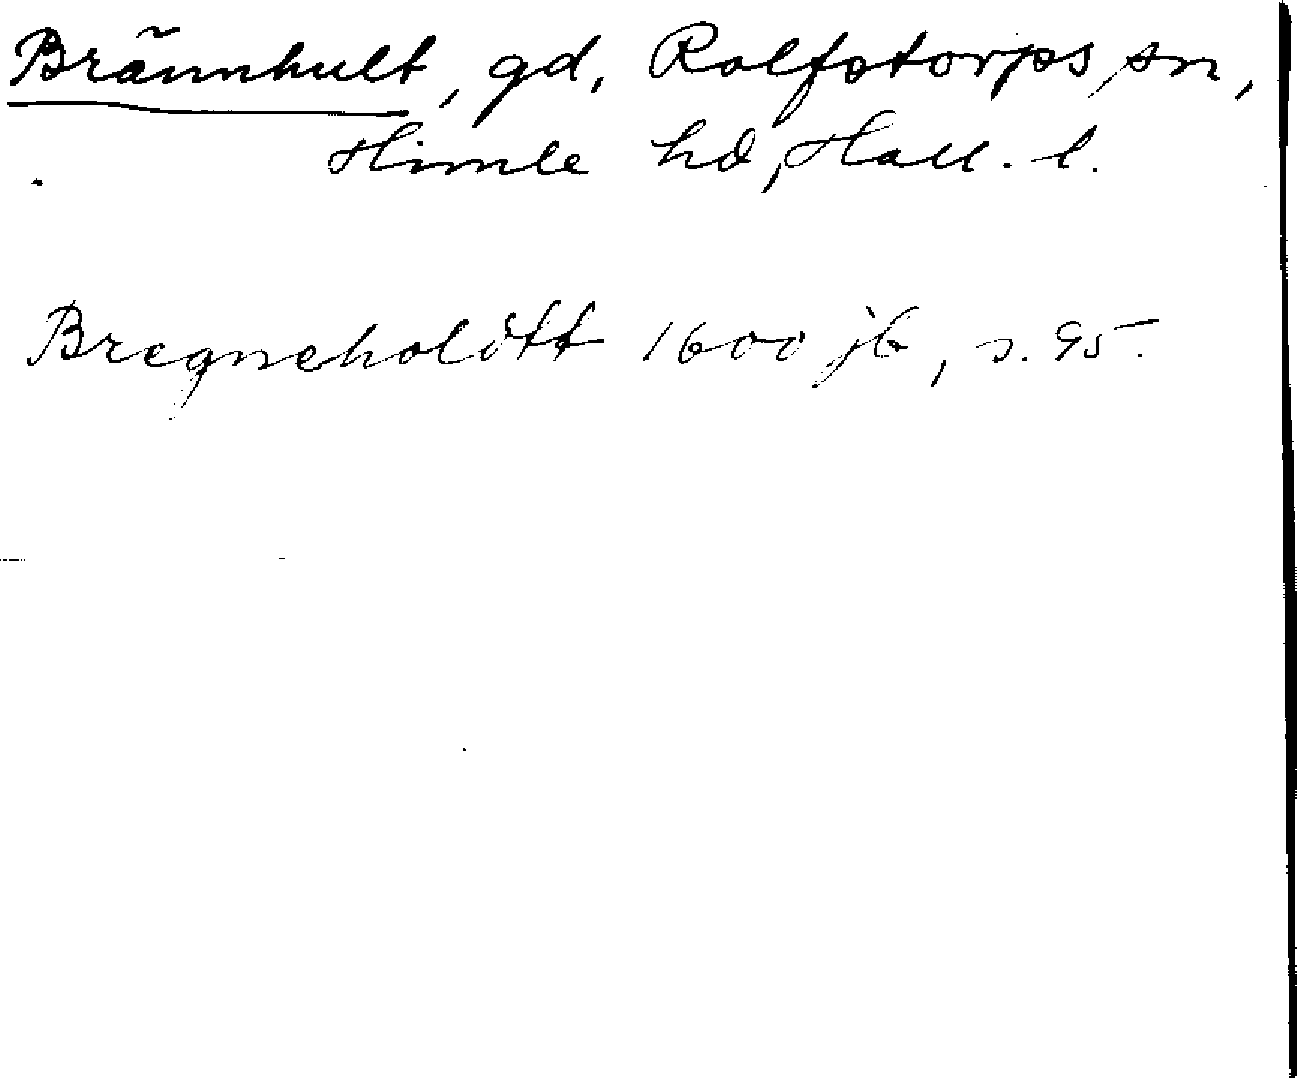 Brännhult, gd, Rolfstorps sn,
Himle hd, Hall. l.
Bregneholdtt 1600 jb, s. 95.